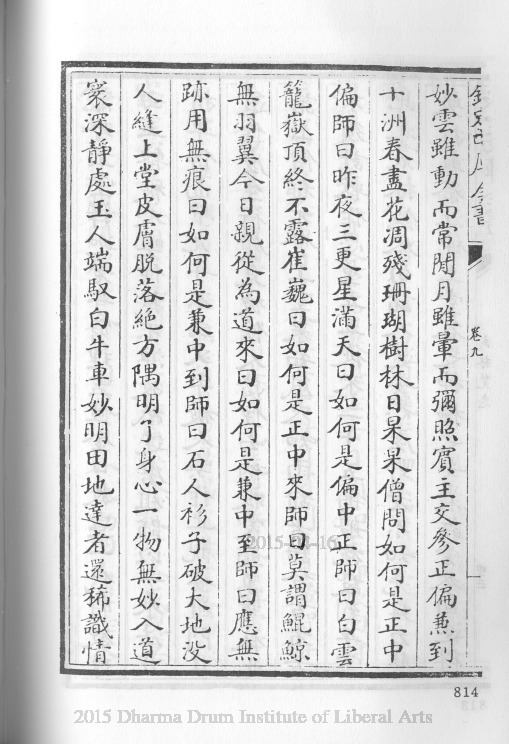 欽定四庫全書
卷九
妙雲雖動而常閒月雖暈而彌照賓主交參正偏兼到
十洲春盡花凋殘珊瑚樹林日杲杲僧問如何是正中
偏師曰昨夜三更星滿天曰如何是偏中正師曰白雲
籠嶽頂終不露崔巍曰如何是正中來師曰莫謂鯤鯨
無羽翼今日親從為道來曰如何是兼中至師曰應無
跡用無痕曰如何是兼中到師曰石人衫子破大地没
人縫上堂皮膚脱落絶方隅明了身心一物無妙入道
寰深靜處玉人端馭白牛車妙明田地達者還稀識情
814
2015-03-16
2015 Dharma Drum Institute of Liberal Arts